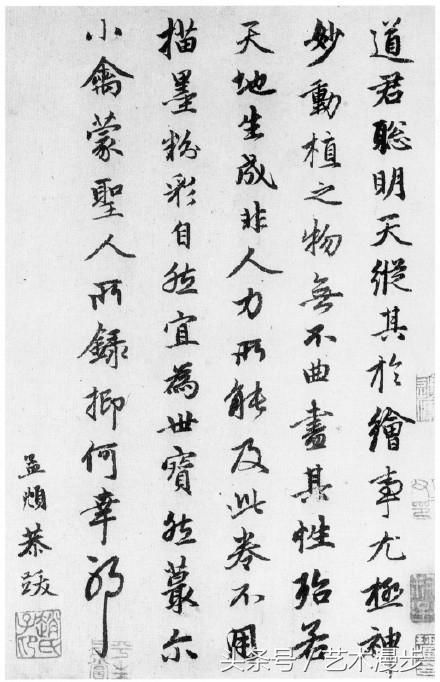 道君聰明天縱其於繪事尤極神
妙動植之物無不曲盡其性殆若
天地生成非人力所能及此卷不用
描墨粉彩自然宜為世寶然蕞尔
小禽蒙聖人所錄抑何幸耶
孟頫恭跋
頭条号 / 艺术漫步